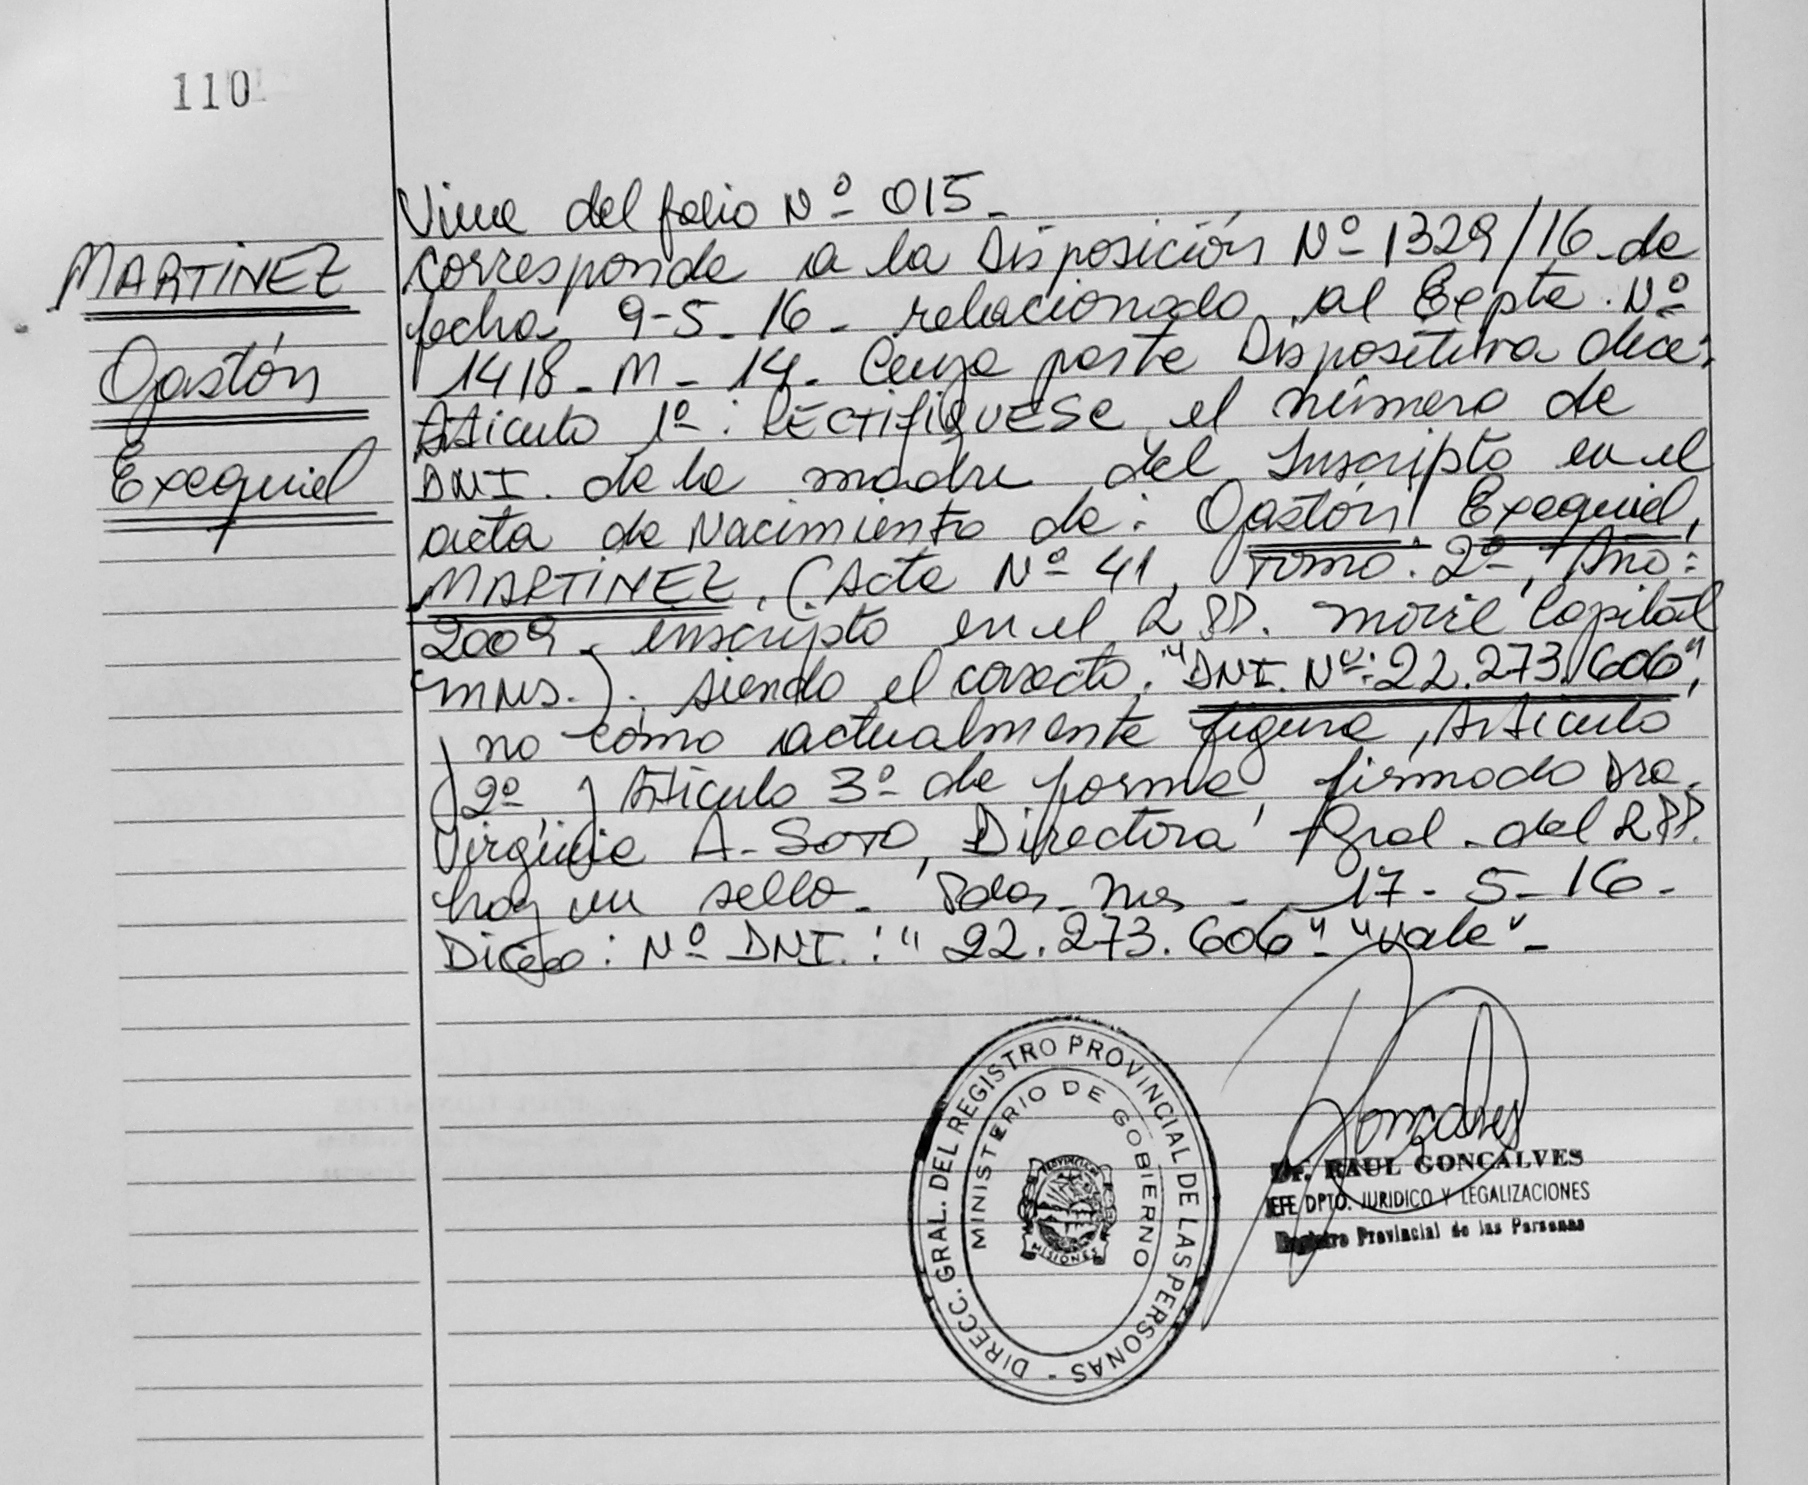 110
MARTINEZ
Gastón
Exequiel
Viene del folio Nº 015-
corresponde a la Disposición Nº 1329/16 de
fecha 9-5-16- relacionado al Expte. Nº
1418-M-14. Cuya parte Dispositiva dice:
Artículo 1º: RECTIFIQUESE el número de
DNI. de la madre del Inscripto en el
acta de Nacimiento de: Gastón Exequiel
MARTINEZ. (Acta Nº 41, Tomo: 2º, Año:
2009- inscripto en el RPP. movil Capital
mns.). siendo el correcto: "DNI. Nº: 22.273.606",
y no como actualmente figura, Artículo
2º y Artículo 3º de forma, firmado Dra.
Virginia A. SOTO, Directora Gral. del RPP.
hay un sello. Pdas. Mnes - 17-5-16-
Digo: Nº DNI.: "22.273.606" "vale"-
DIRECC. GRAL. DEL REGISTRO PROVINCIAL DE LAS PERSONAS -
MINISTERIO DE GOBIERNO
MISIONES
Dr. RAUL GONCALVES
JEFE DPTO. JURIDICO Y LEGALIZACIONES
Registro Provincial de las Personas